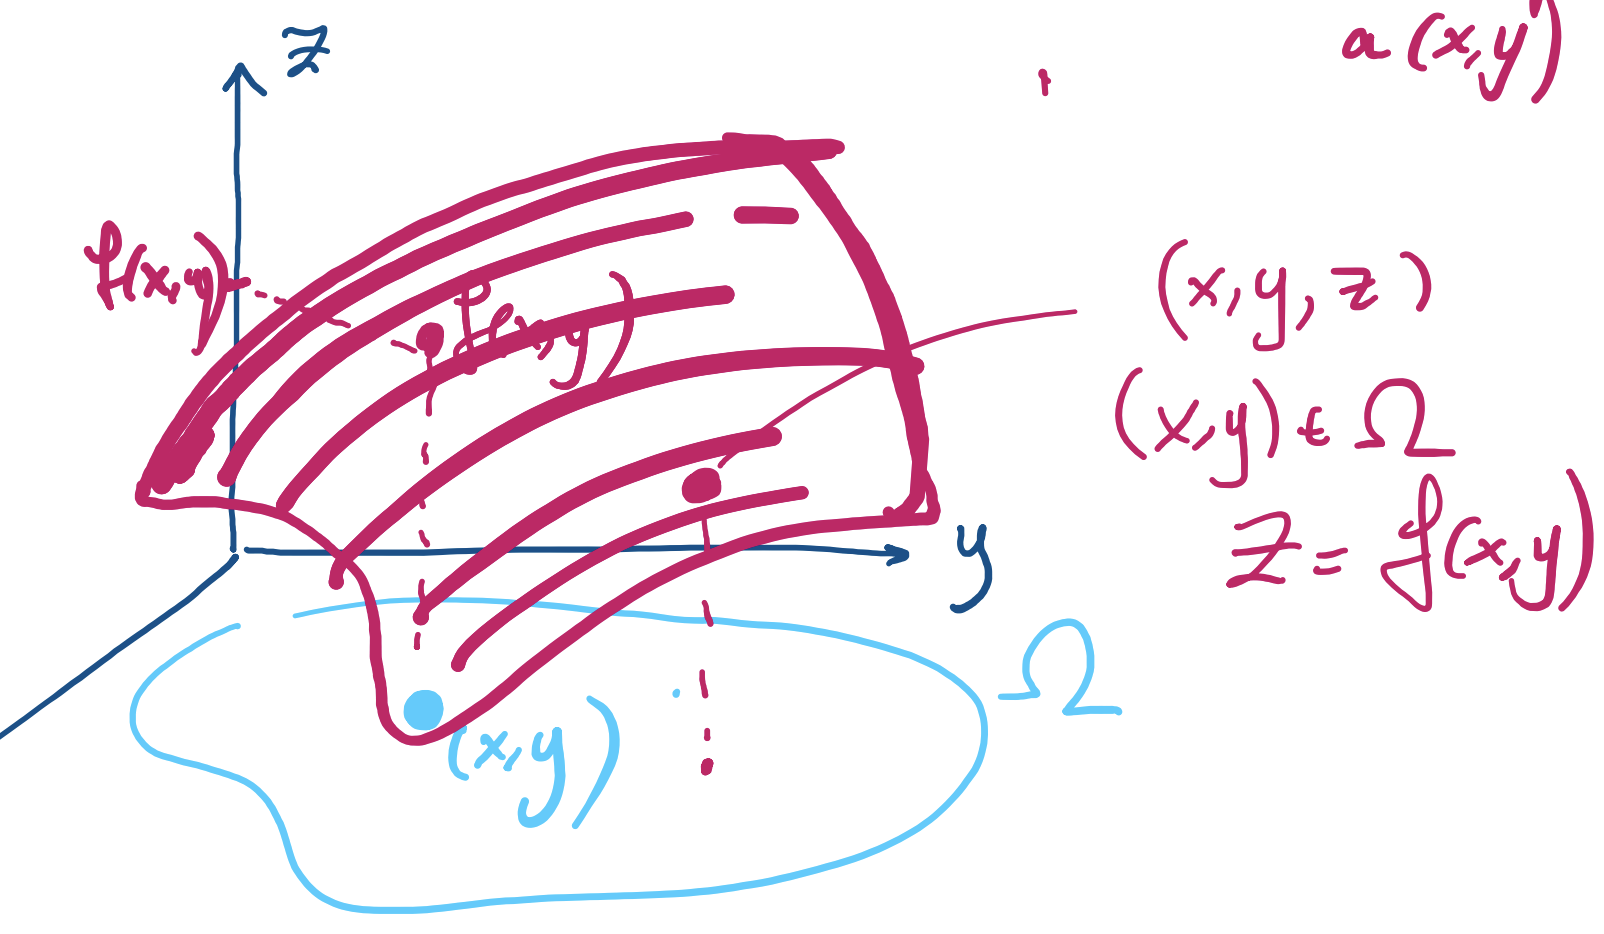 z
a(x,y)
f(x,y)
P(f(x,y))
(x,y,z)
(x,y) ∈ Ω
z = f(x,y)
y
Ω
(x,y)